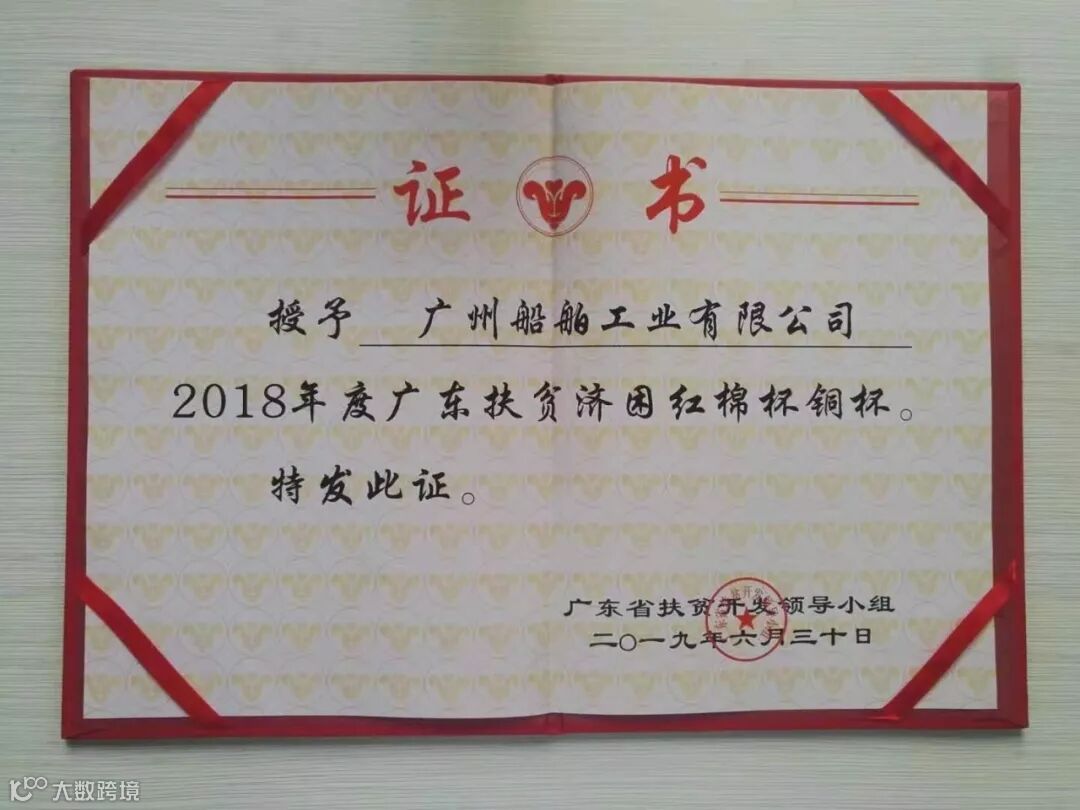 证书
授予 广州船舶工业有限公司
2018年度广东扶贫济困红棉杯铜杯。
特发此证。
广东省扶贫开发领导小组
二〇一九年六月三十日
大数跨境